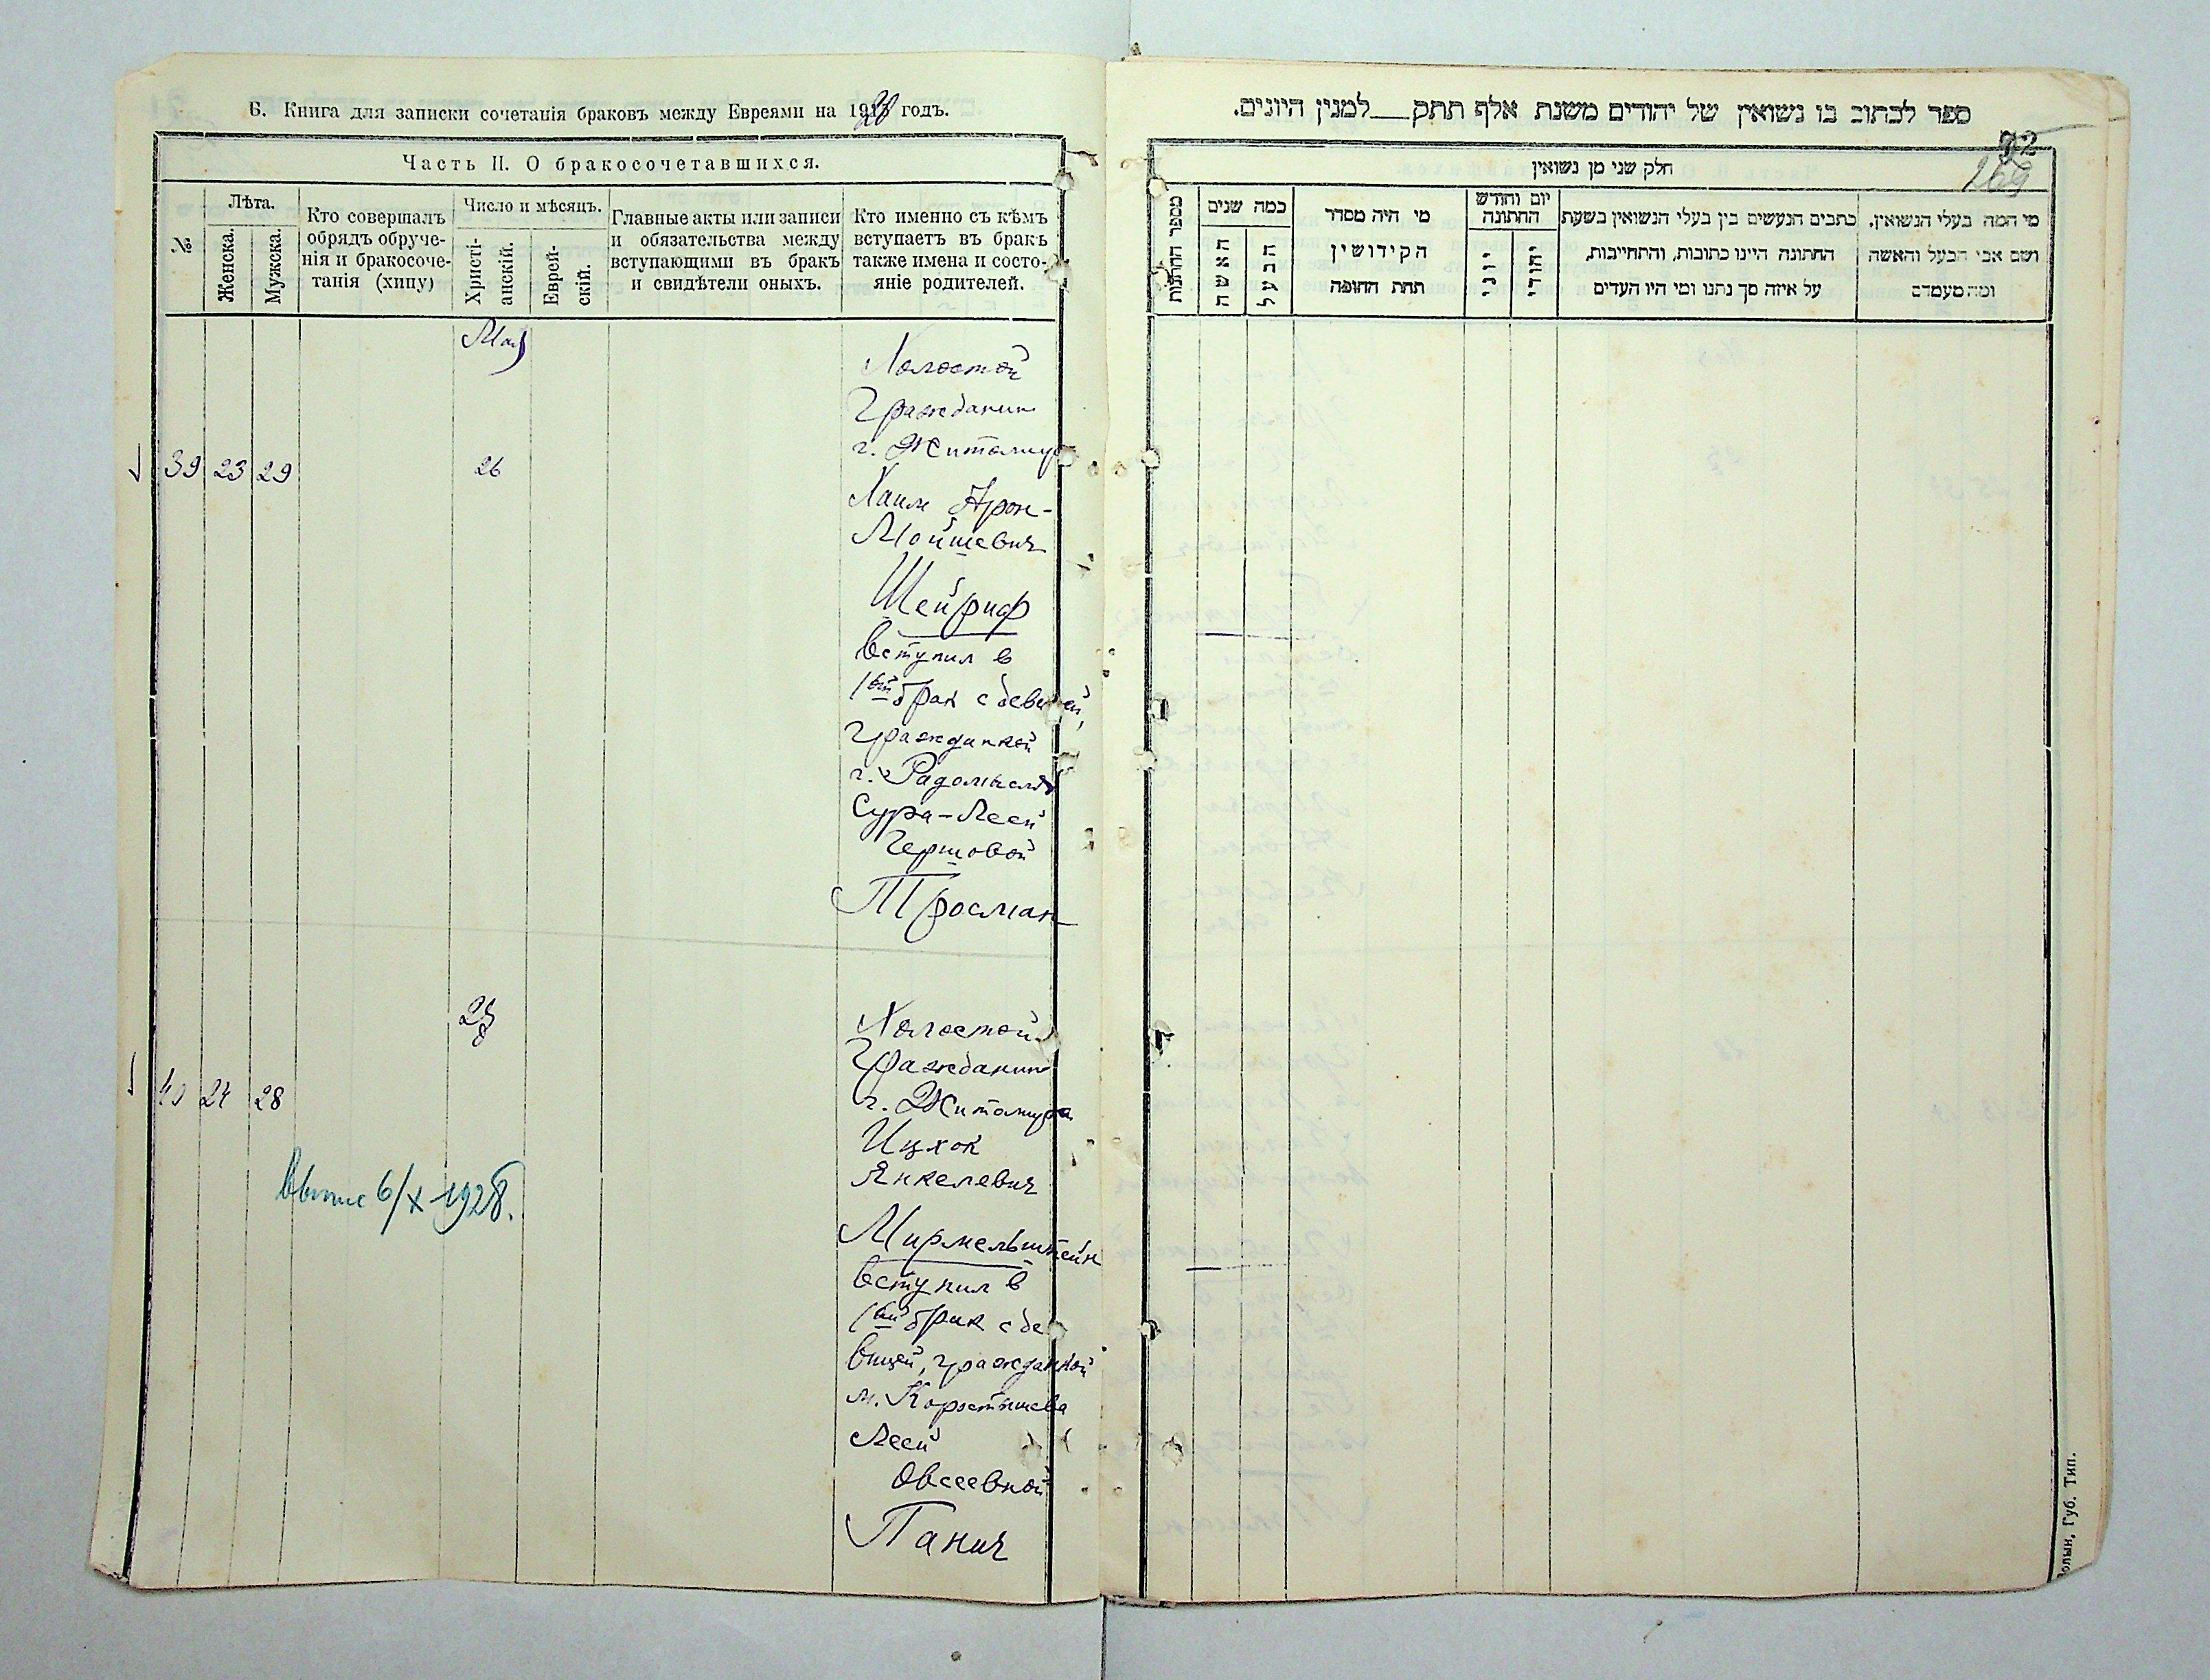 Б. Книга для записки сочетанія браковъ между Евреями на 1920 годъ.
Часть II. О бракосочетавшихся.
№
Лѣта.
Женска.
Мужска.
Кто совершалъ
обрядъ обруче-
нія и бракосоче-
танія (хипу)
Число и мѣсяцъ.
Христі-
анскій.
Еврей-
скій.
Главные акты или записи
и обязательства между
вступающими въ бракъ
и свидѣтели оныхъ.
Кто именно съ кѣмъ
вступаетъ въ бракъ
также имена и состо-
яніе родителей.
Май
39 23 29
26
Холостой
Гражданин
г. Житомир
Хаим Арон-
Мойшевич
Шейфиф
вступил в
1ый брак с девицей,
гражданкой
г. Радомысля
Сура-Леей
Гершовой
Тросман
28
40 24 28
Холостой
Гражданин
г. Житомира
Ицхок
Янкелевич
Мирмельштейн
вступил в
1ый брак с де
вицей, гражданкой
м. Коростышева
Леей
Овсеевной
Панич
6/X 1928.
ספר לכתוב בו נשואין של יהודים משנת אלף תתק למנין היונים.
72
269
חלק שני מן נשואין
מספר החתונות
כמה שנים
האשה
הבעל
מי היה מסדר
הקידושין
תחת החופה
יום וחודש
החתונה
יוני
יהודי
כתבים הנעשים בין בעלי הנשואין בשעת
החתונה היינו כתובות, והתחייבות,
על איזה סך נתנו ומי היו העדים
מי המה בעלי הנשואין,
ושם אבי הבעל והאשה
ומה מעמדם
Волын. Губ. Тип.